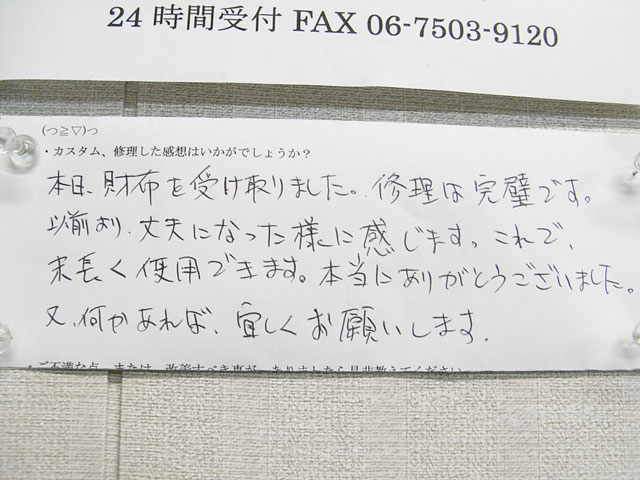 24 時間受付 FAX 06-7503-9120
(つ≧▽)つ
・カスタム、修理した感想はいかがでしょうか？
本日、財布を受け取りました。修理は完璧です。
以前より、丈夫になった様に感じます。これで、
末長く使用できます。本当にありがとうございました。
又、何かあれば、宜しくお願いします。
・ご不満な点、または、改善すべき事が、ありましたら是非教えてください